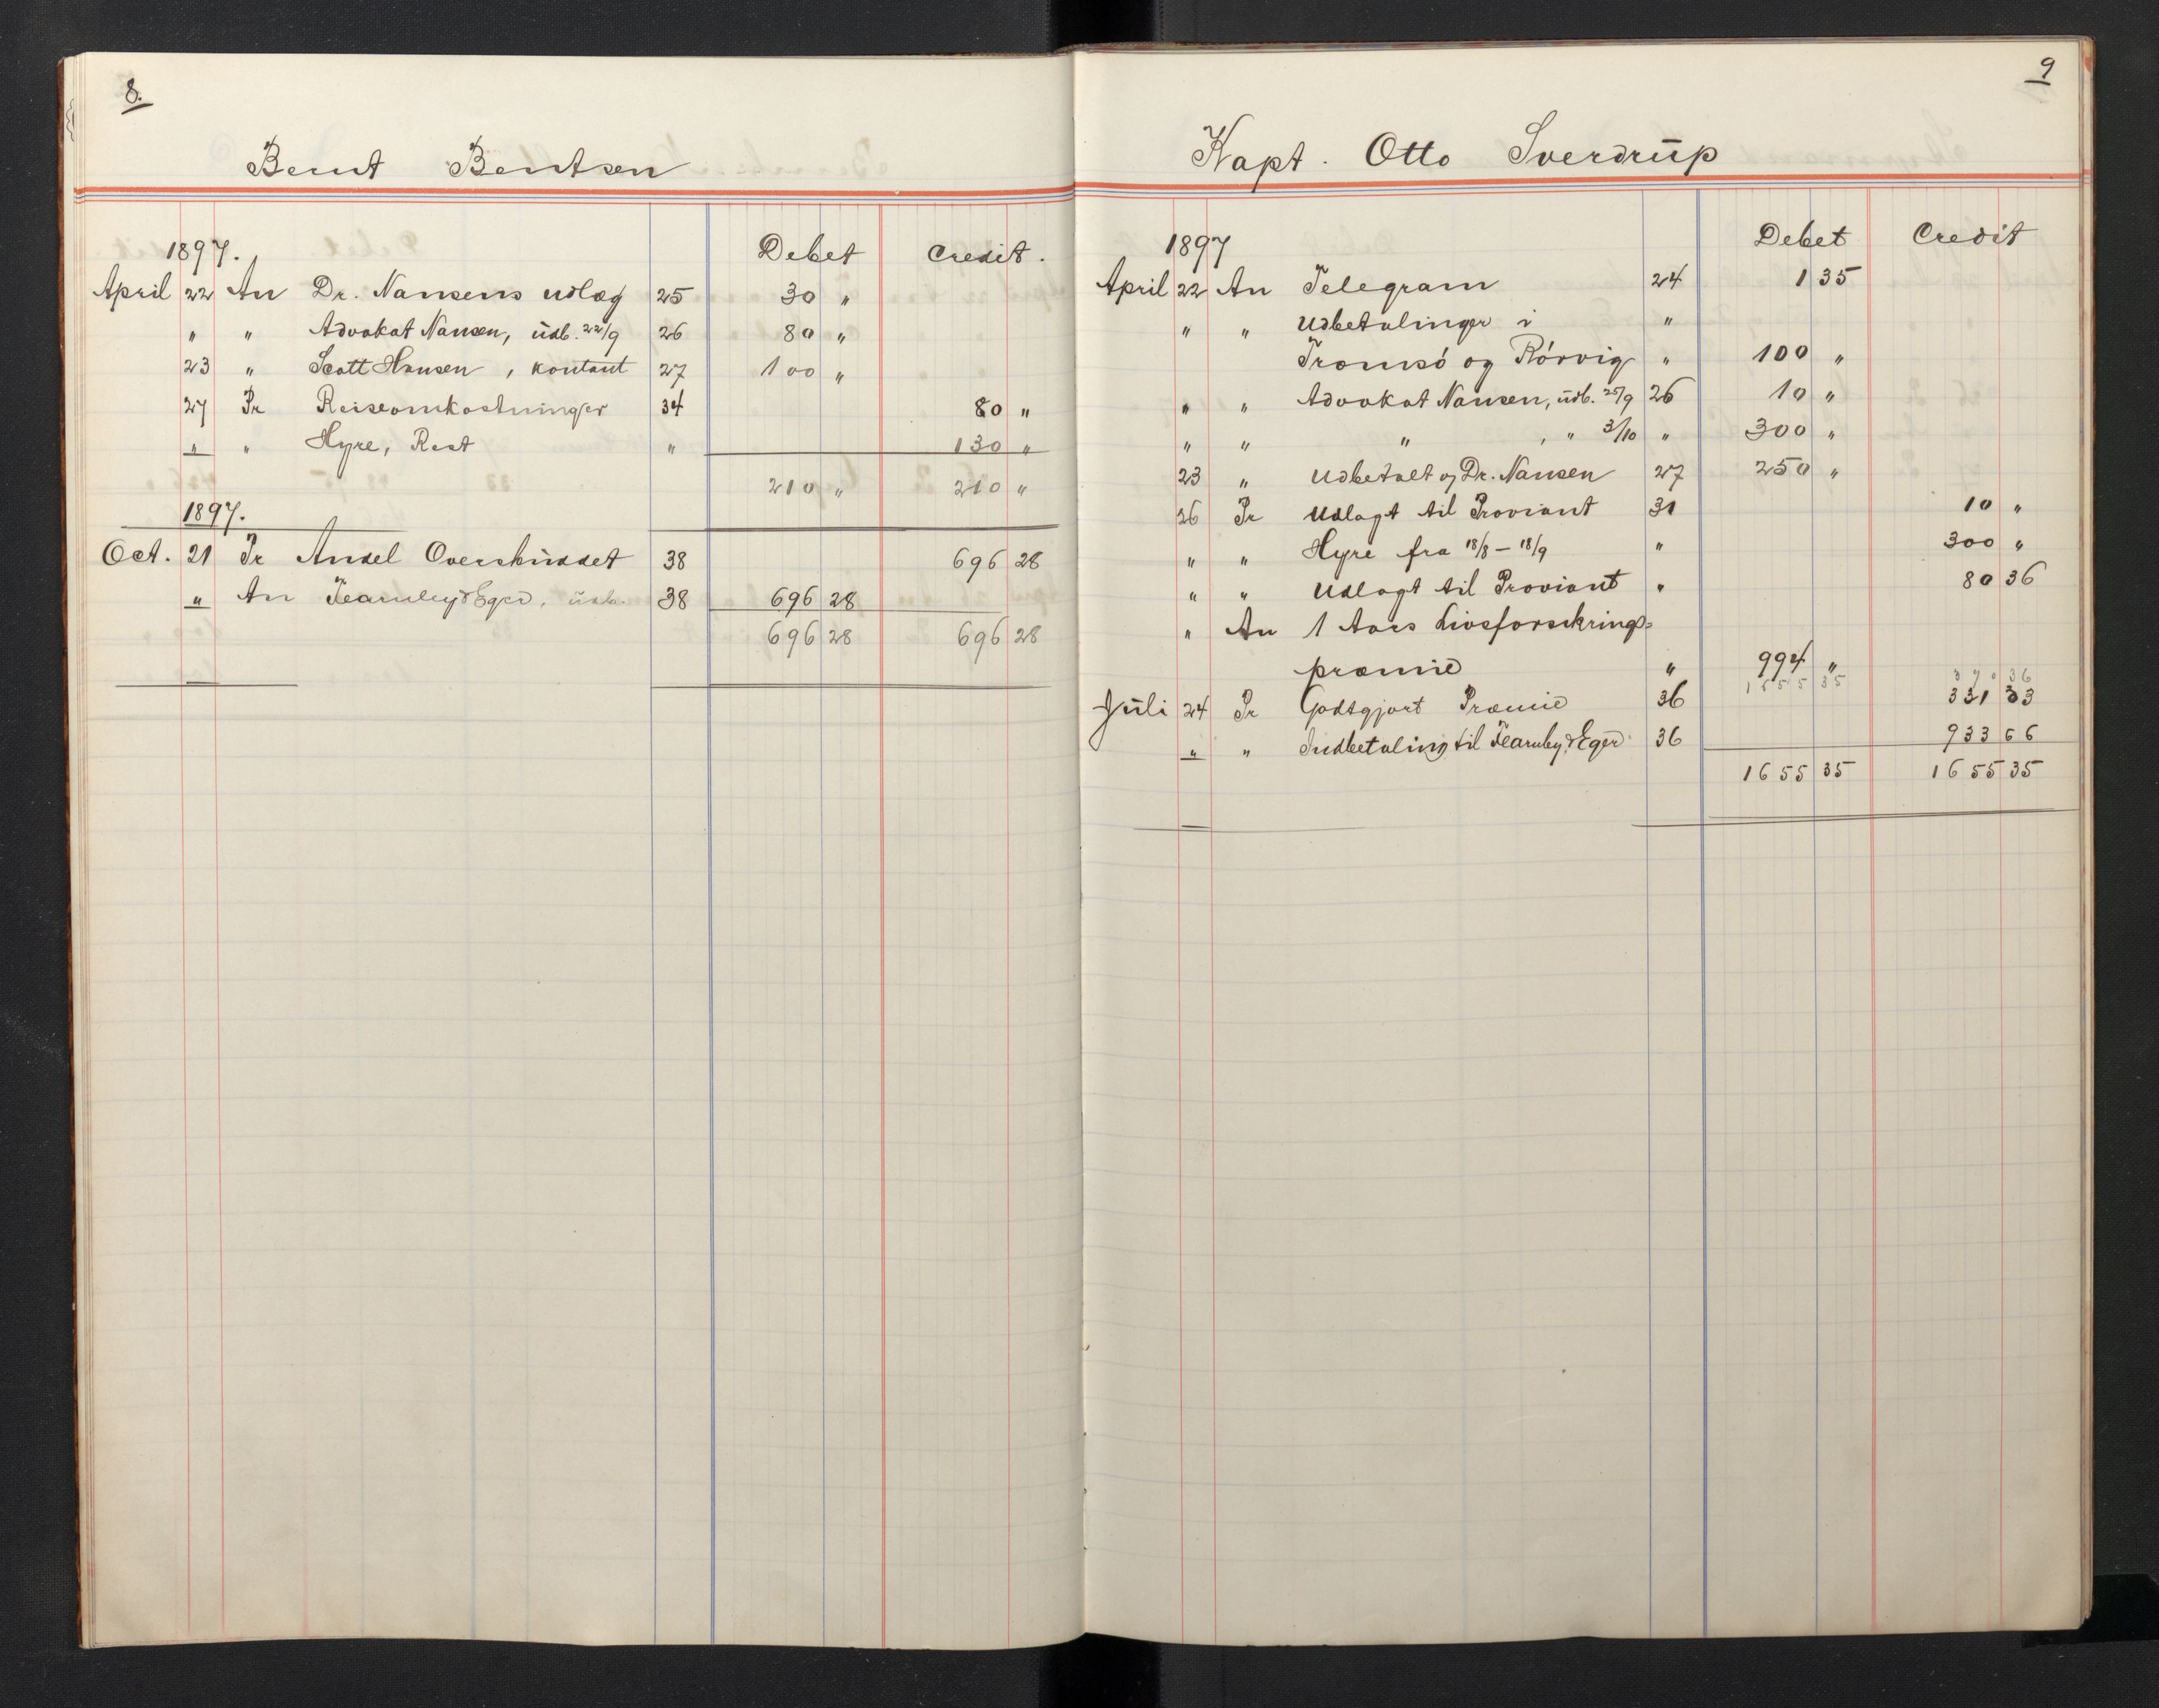 8.
Bernt Bentsen
1897. Debet Credit.
April 22 An Dr. Nansens udlæg 25 30 "
" " Advokat Nansen, udb. 22/9 26 80 "
23 " Scott Hansen, kontant 27 100 "
27 Pr Reiseomkostninger 34 80 "
" " Hyre, Rest " 130 "
210 " 210 "
1897.
Oct. 21 Pr Andel Overskuddet 38 696 28
" An Fearnley & Eger, udb. 38 696 28
696 28 696 28
9
Kapt. Otto Sverdrup
1897 Debet Credit
April 22 An Telegram 24 1 35
" " Udbetalinger i "
Tromsö og Rörvig " 100 "
" " Advokat Nansen, udb. 25/9 26 10 "
" " " , " 3/10 " 300 "
23 " Udbetalt af Dr. Nansen 27 250 "
26 Pr Udlagt til Proviant 31 10 "
" " Hyre fra 18/8 - 18/9 " 300 "
" " Udlagt til Proviant " 80 36
" An 1 Aars Livsforsikrings=
præmie " 994 "
1655 35 390 36
Juli 24 Pr Godtgjort Præmie 36 331 33
" " Indbetaling til Fearnley & Eger 36 933 66
1655 35 1655 35